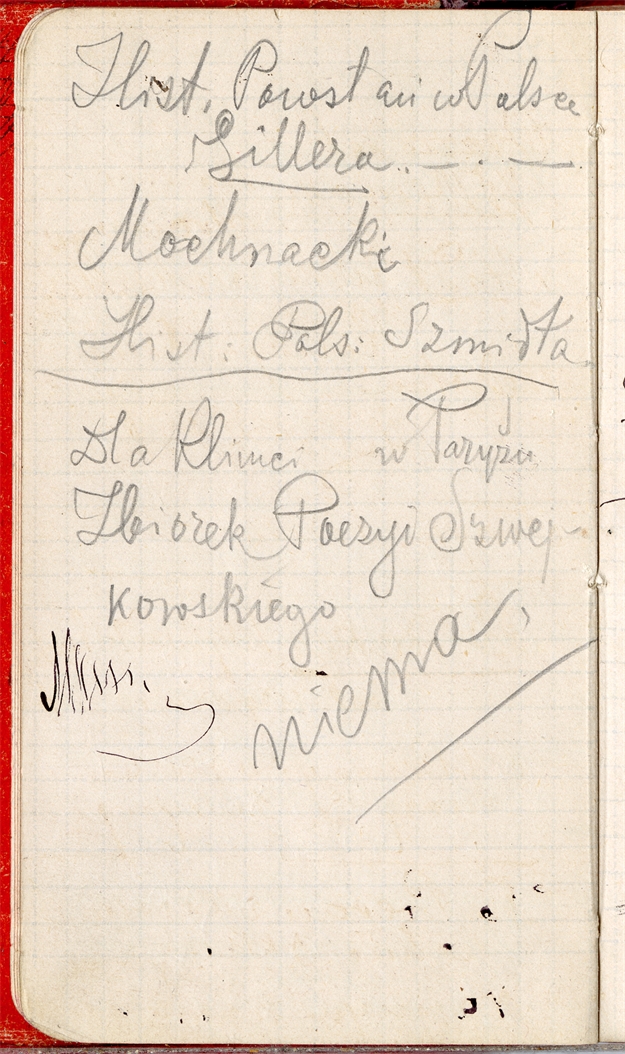 Hist. Powstań w Polsce
Gillera. — . —
Mochnacki
Hist: Pols: Szmidta
Dla Klimci w Paryżu
Zbiorek Poezyi Szwej-
kowskiego
niema